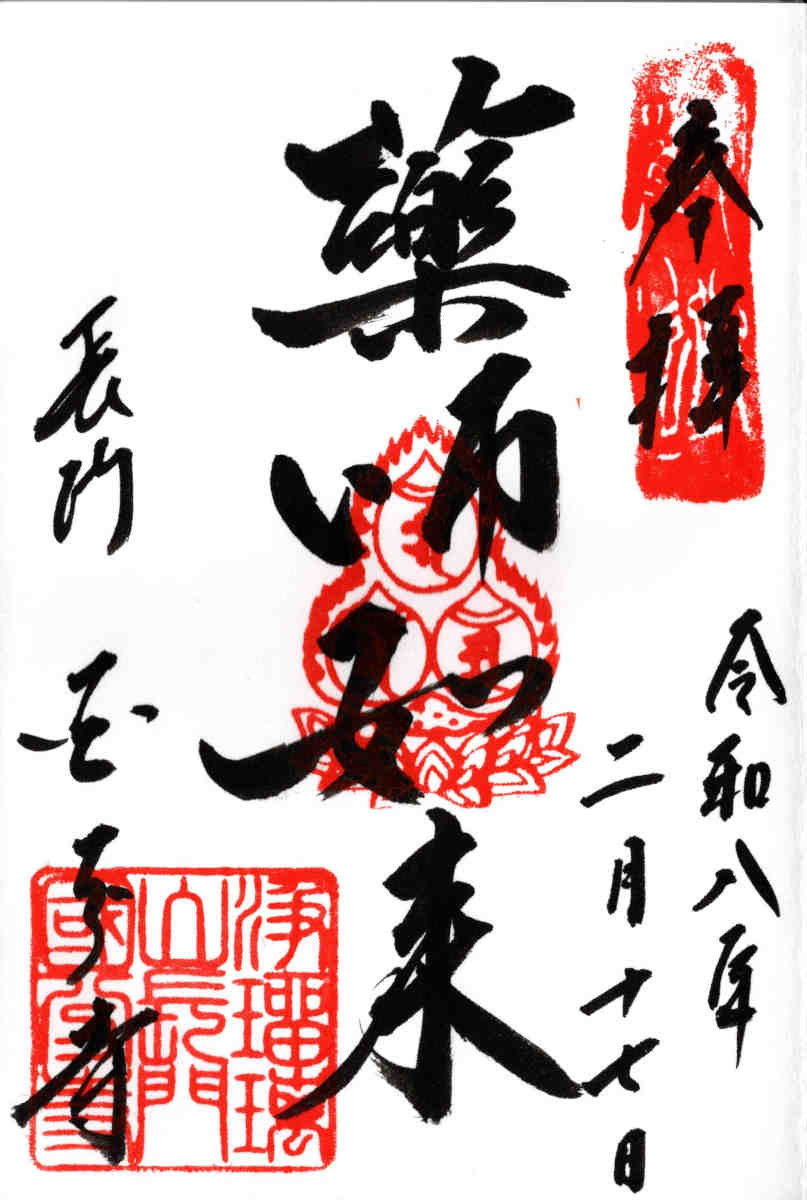 奉拝
令和八年
二月十七日
薬師如来
長門
国分寺
浄瑠璃
山長門
國分寺